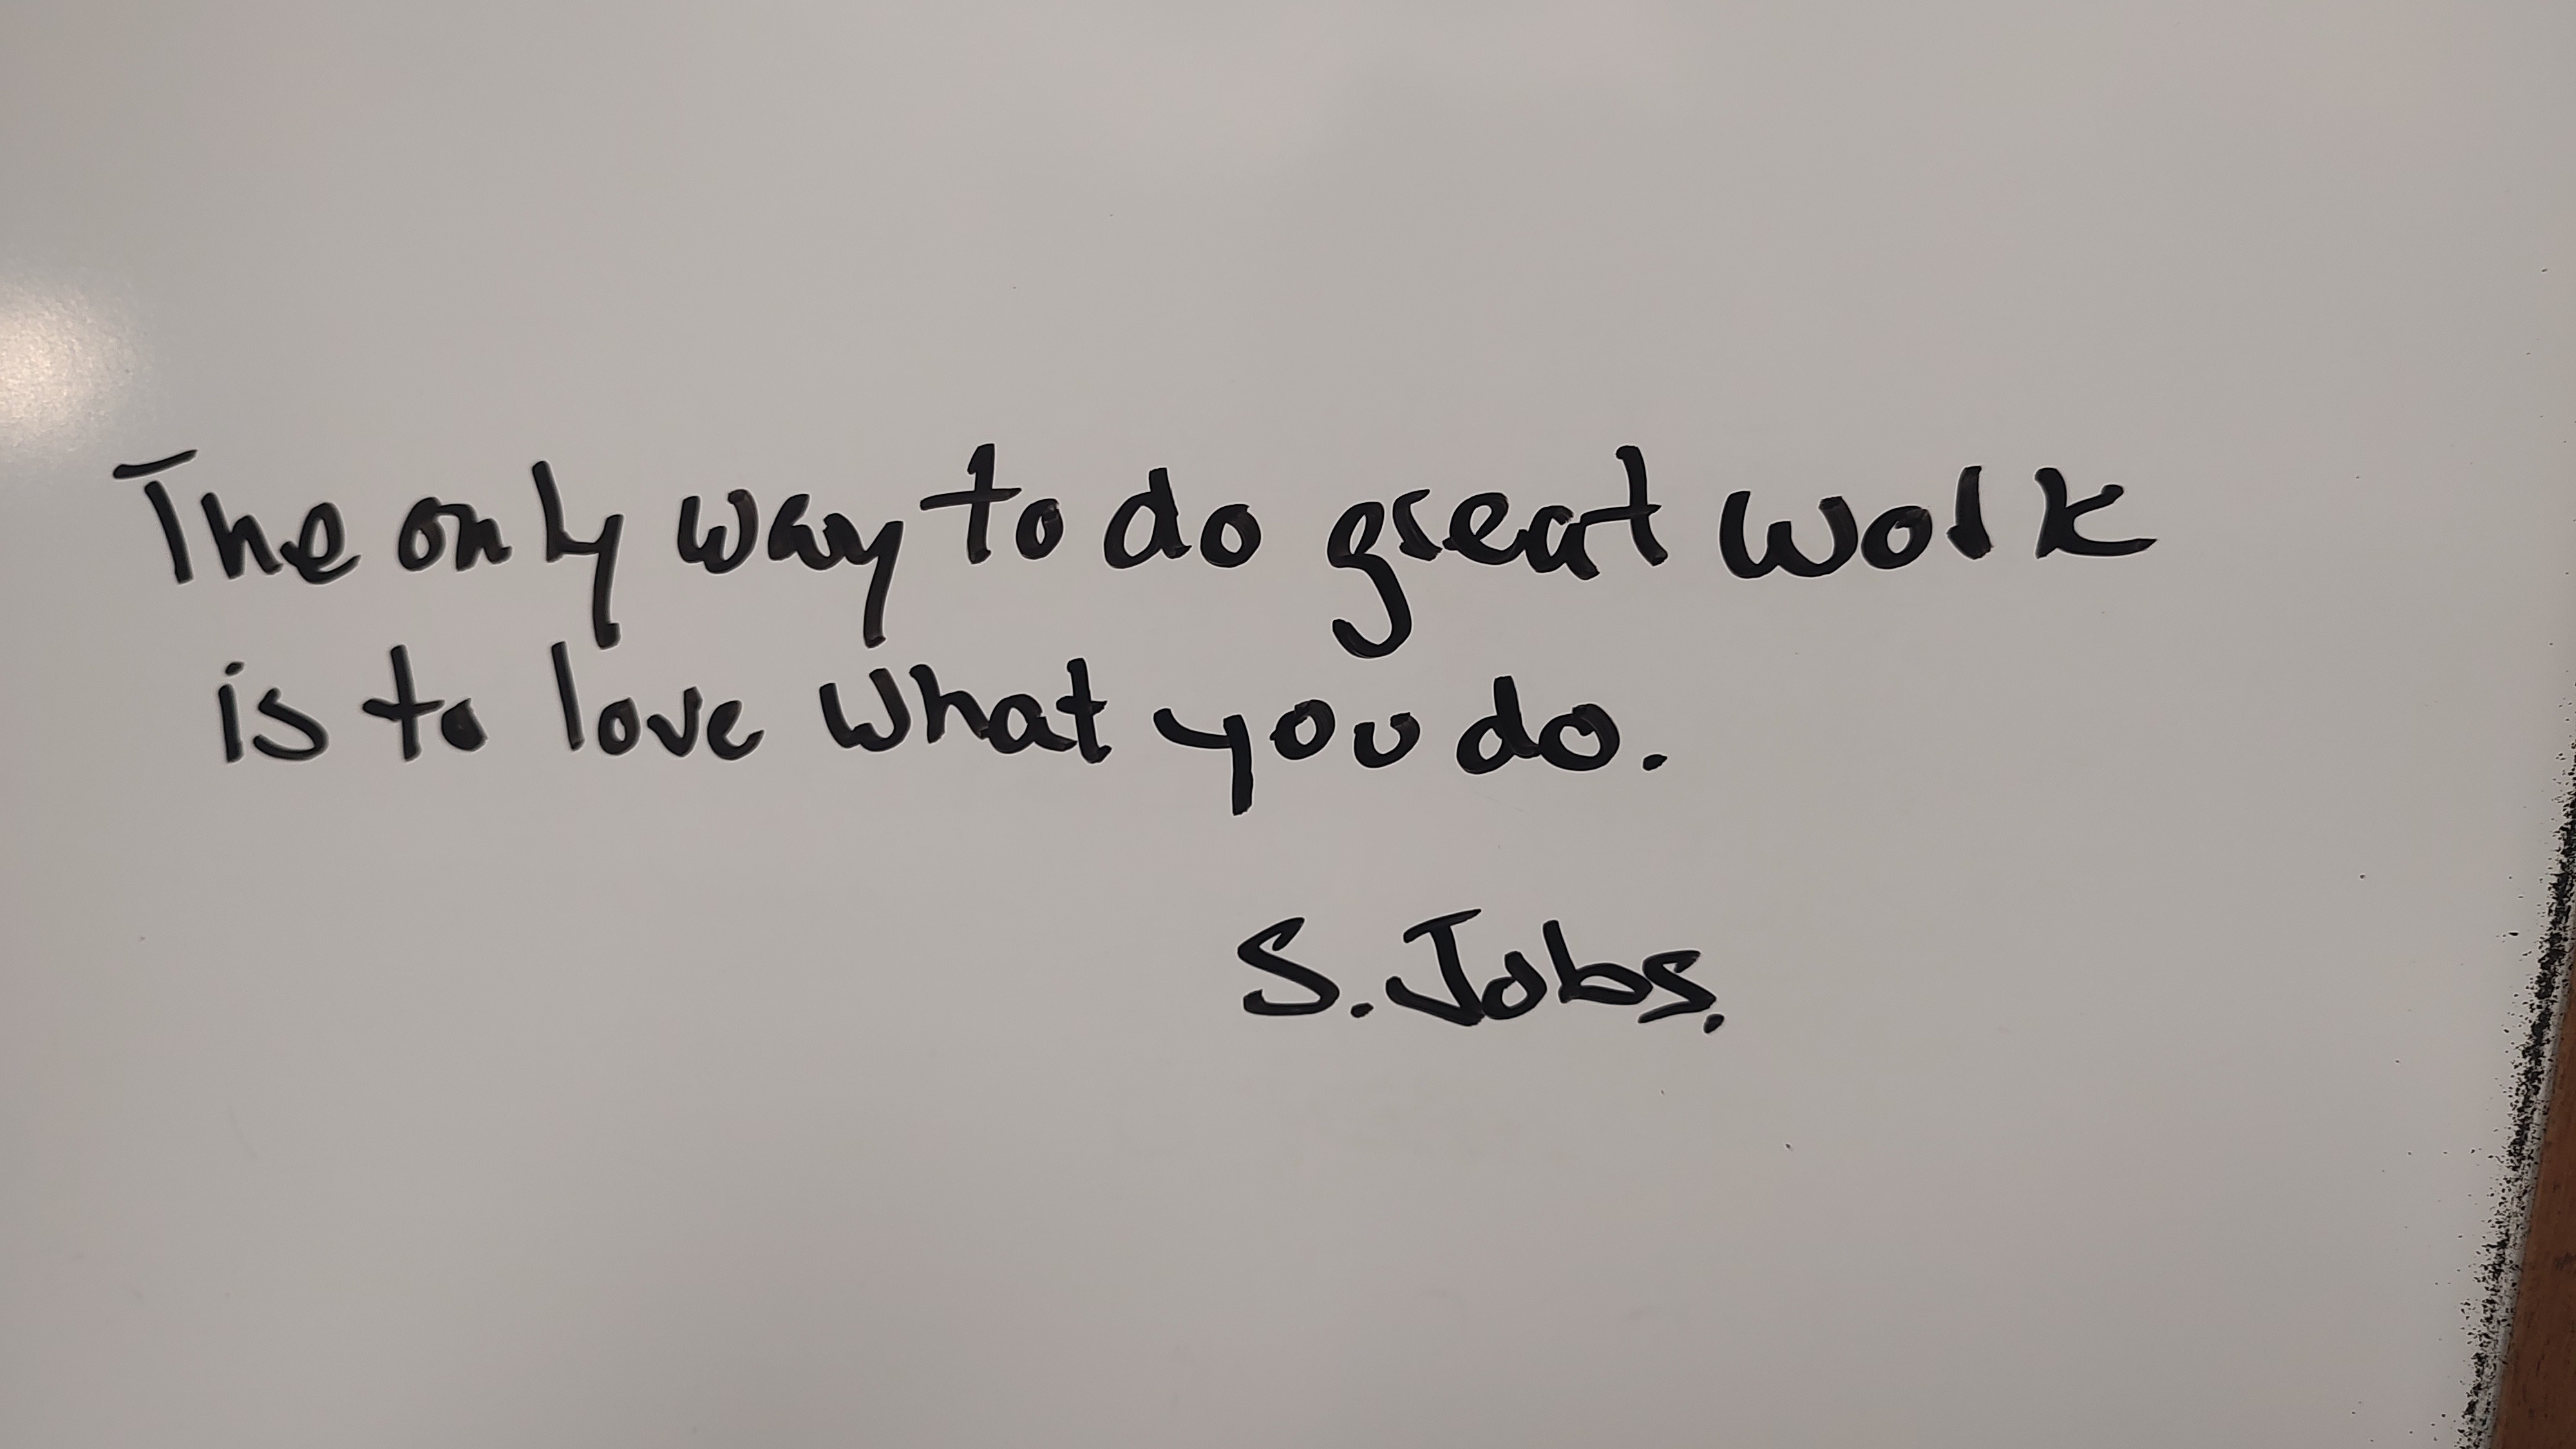 The only way to do great work
is to love what you do.
S. Jobs.